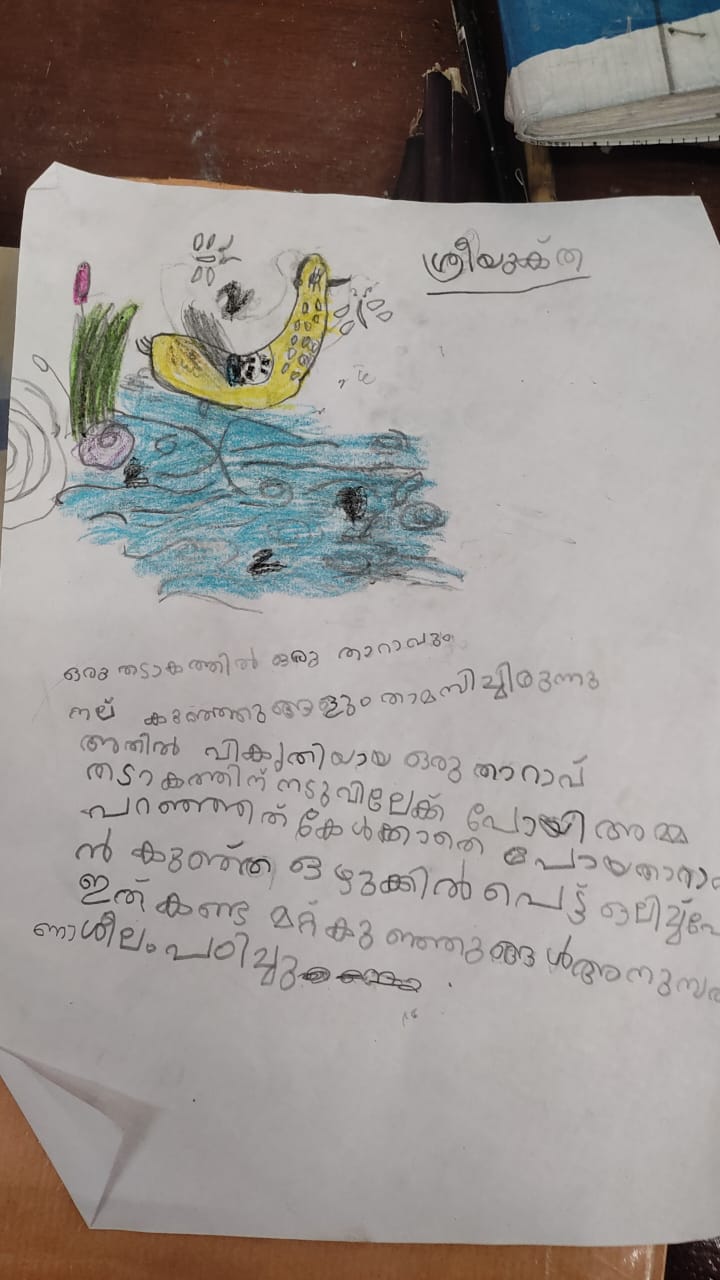 ശ്രീയുക്ത
ഒരു തടാകത്തിൽ ഒരു താറാവും
നല് കുഞ്ഞുങ്ങളും താമസിച്ചിരുന്നു
അതിൽ വികൃതിയായ ഒരു താറാവ്
തടാകത്തിന് നടുവിലേക്ക് പോയി അമ്മ
പറഞ്ഞത് കേൾക്കാതെ പോയ
ൻ കുഞ്ഞ് ഒഴുക്കിൽ പെട്ട്
ഇത് കണ്ട മറ്റ് കുഞ്ഞുങ്ങൾ
ണാശീലം പഠിച്ചു